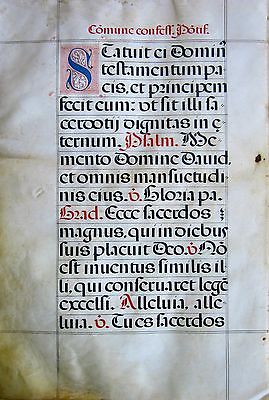 Cõmune confess. Põtif.
Statuit ei Domin
testamentum pa
cis, et principem
fecit eum: vt sit illi sa
cerdotij dignitas in e
ternum. Psalm. Me
mento Domine Dauid,
et omnis mansuetudi
nis eius. ℣. Gloria pa
Grad. Ecce sacerdos
magnus, qui in diebus
suis placuit Deo. ℣. Nõ
est inuentus similis il
li, qui conseruaret legẽ
excelsi. Alleluia, alle
luia. ℣. Tu es sacerdos